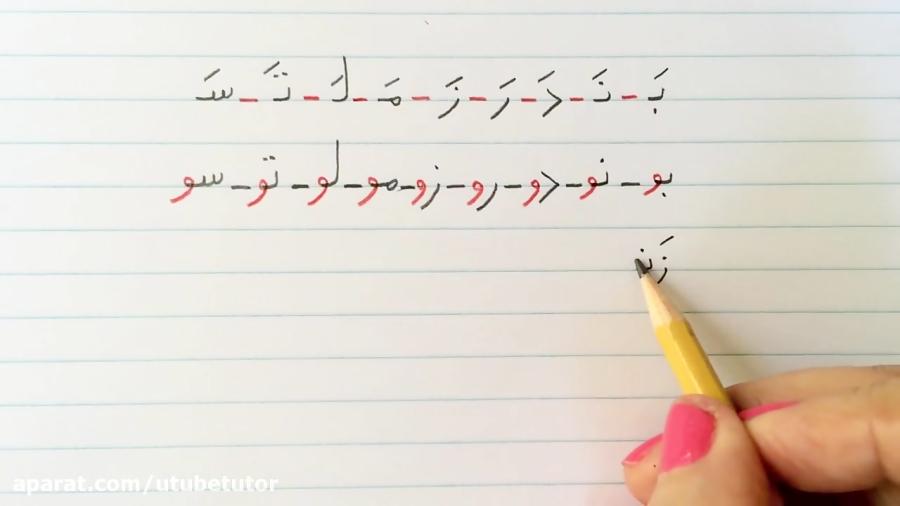 بَـ - نَـ - دَ - رَ - زَ - مَـ - لَـ - تَـ - سَـ
بو - نو - دو - رو - زو - مو - لو - تو - سو
زَنـ
aparat.com/utubetutor